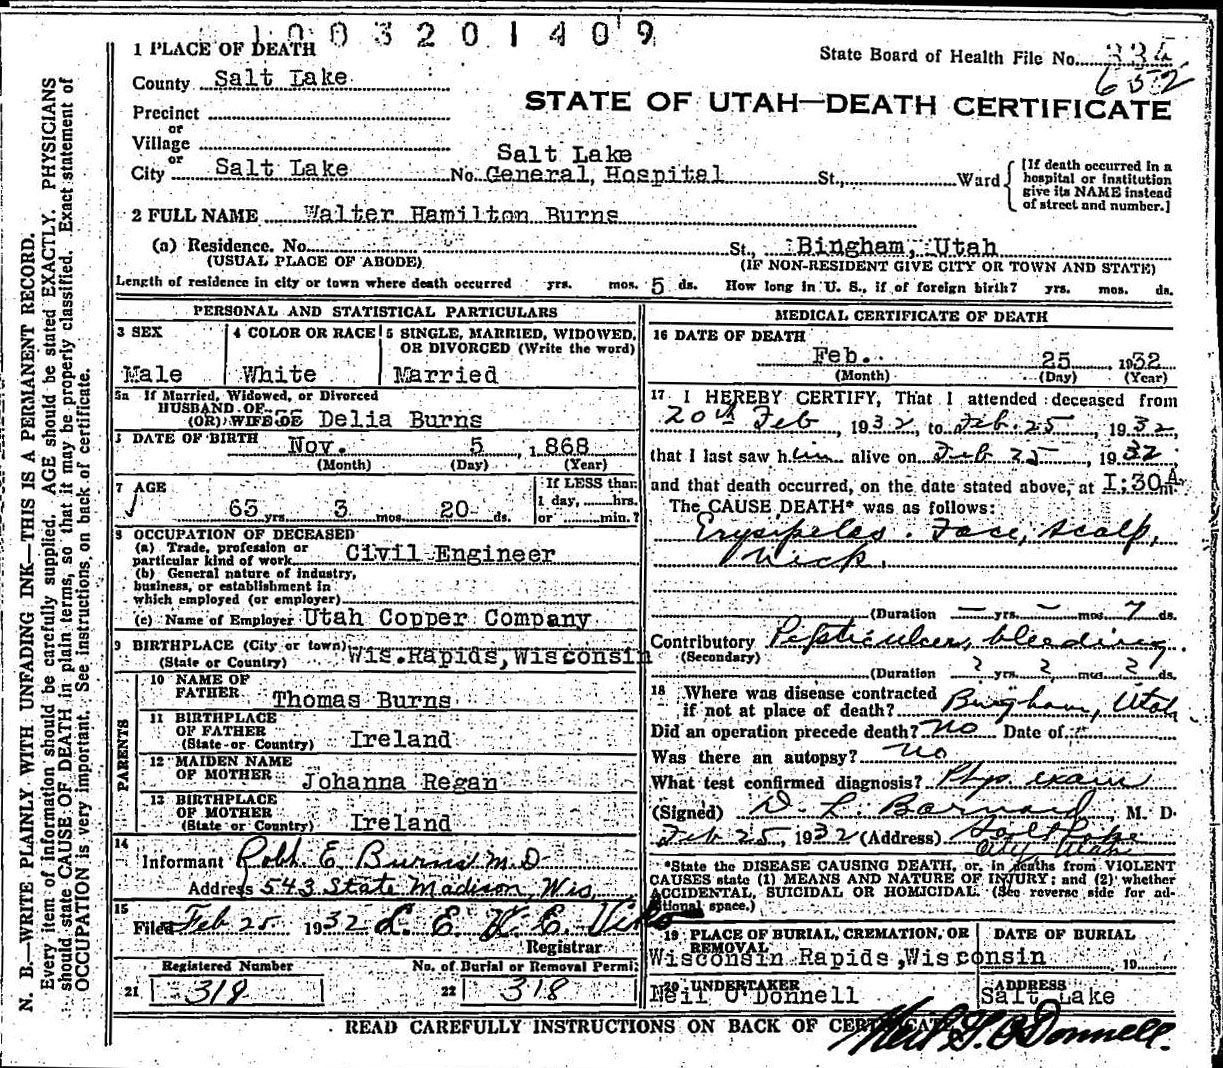 1003201409
1 PLACE OF DEATH
State Board of Health File No. 334
652
County Salt Lake
STATE OF UTAH—DEATH CERTIFICATE
Precinct
or
Village
or
City Salt Lake No. Salt Lake General Hospital St., Ward
[If death occurred in a
hospital or institution
give its NAME instead
of street and number.]
2 FULL NAME Walter Hamilton Burns
(a) Residence. No. St., Bingham, Utah
(USUAL PLACE OF ABODE) (IF NON-RESIDENT GIVE CITY OR TOWN AND STATE)
Length of residence in city or town where death occurred yrs. mos. 5 ds. How long in U. S., if of foreign birth? yrs. mos. ds.
PERSONAL AND STATISTICAL PARTICULARS
3 SEX
Male
4 COLOR OR RACE
White
5 SINGLE, MARRIED, WIDOWED,
OR DIVORCED (Write the word)
Married
5a If Married, Widowed, or Divorced
HUSBAND OF
(OR) WIFE OF Delia Burns
DATE OF BIRTH Nov. 5, 1868
(Month) (Day) (Year)
7 AGE
63 yrs. 3 mos. 20 ds.
If LESS than
1 day, hrs.
or min.?
8 OCCUPATION OF DECEASED
(a) Trade, profession or
particular kind of work Civil Engineer
(b) General nature of industry,
business, or establishment in
which employed (or employer)
(c) Name of Employer Utah Copper Company
9 BIRTHPLACE (City or town) Wis. Rapids, Wisconsin
(State or Country)
PARENTS
10 NAME OF
FATHER Thomas Burns
11 BIRTHPLACE
OF FATHER
(State or Country) Ireland
12 MAIDEN NAME
OF MOTHER Johanna Regan
13 BIRTHPLACE
OF MOTHER
(State or Country) Ireland
14
Informant Robt. E Burns M.D
Address 543 State Madison, Wis.
15
Filed Feb 25 1932
Registrar
Registered Number
21 319
No. of Burial or Removal Permit
22 318
MEDICAL CERTIFICATE OF DEATH
16 DATE OF DEATH
Feb. 25, 1932
(Month) (Day) (Year)
17 I HEREBY CERTIFY, That I attended deceased from
20th Feb, 1932, to Feb. 25, 1932,
that I last saw him alive on Feb 25, 1932
and that death occurred, on the date stated above, at 1:30A m.
The CAUSE DEATH* was as follows:
Erysipelas. Face, Scalp,
Neck.
(Duration — yrs. — mos. 7 ds.
Contributory Peptic ulcer, bleeding.
(Secondary)
(Duration ? yrs. ? mos. ? ds.
18 Where was disease contracted
if not at place of death? Bingham, Utah
Did an operation precede death? No Date of
Was there an autopsy? no
What test confirmed diagnosis? Phys. exam
(Signed) D. L. Barnard, M. D.
Feb 25, 1932 (Address) Salt Lake
City Utah
*State the DISEASE CAUSING DEATH, or, in deaths from VIOLENT
CAUSES state (1) MEANS AND NATURE OF INJURY; and (2) whether
ACCIDENTAL, SUICIDAL OR HOMICIDAL. (See reverse side for ad-
ditional space.)
19 PLACE OF BURIAL, CREMATION, OR
REMOVAL
Wisconsin Rapids, Wisconsin
DATE OF BURIAL
19
20 UNDERTAKER
Neil O'Donnell
ADDRESS
Salt Lake
READ CAREFULLY INSTRUCTIONS ON BACK OF CERTIFICATE
Neil G. O'Donnell.
N. B.—WRITE PLAINLY WITH UNFADING INK—THIS IS A PERMANENT RECORD.
Every item of information should be carefully supplied. AGE should be stated EXACTLY. PHYSICIANS
should state CAUSE OF DEATH in plain terms, so that it may be properly classified. Exact statement of
OCCUPATION is very important. See instructions on back of certificate.